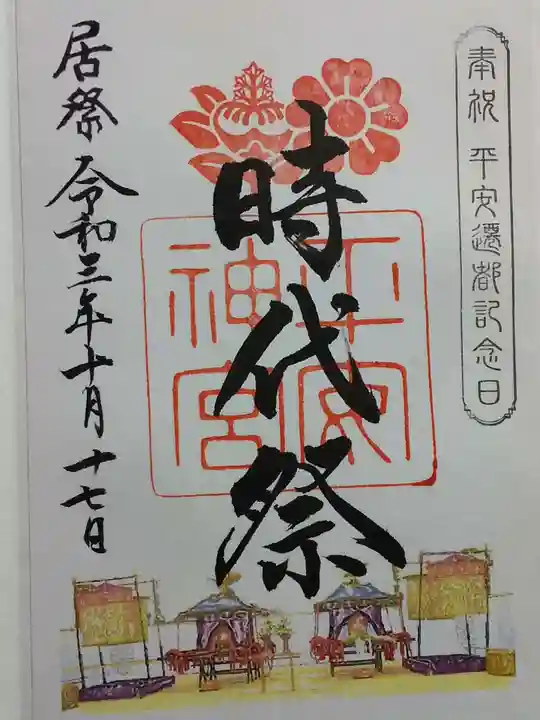 奉祝 平安遷都記念日
時代祭
平安
神宮
居祭 令和三年十月十七日